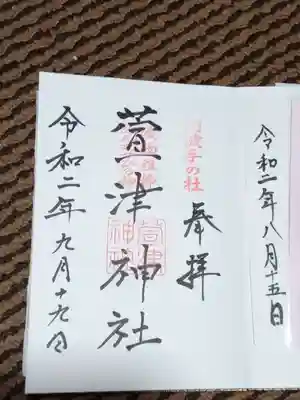 令和二年八月十五日
奉拝
の社
萱津神社
令和二年九月十九日